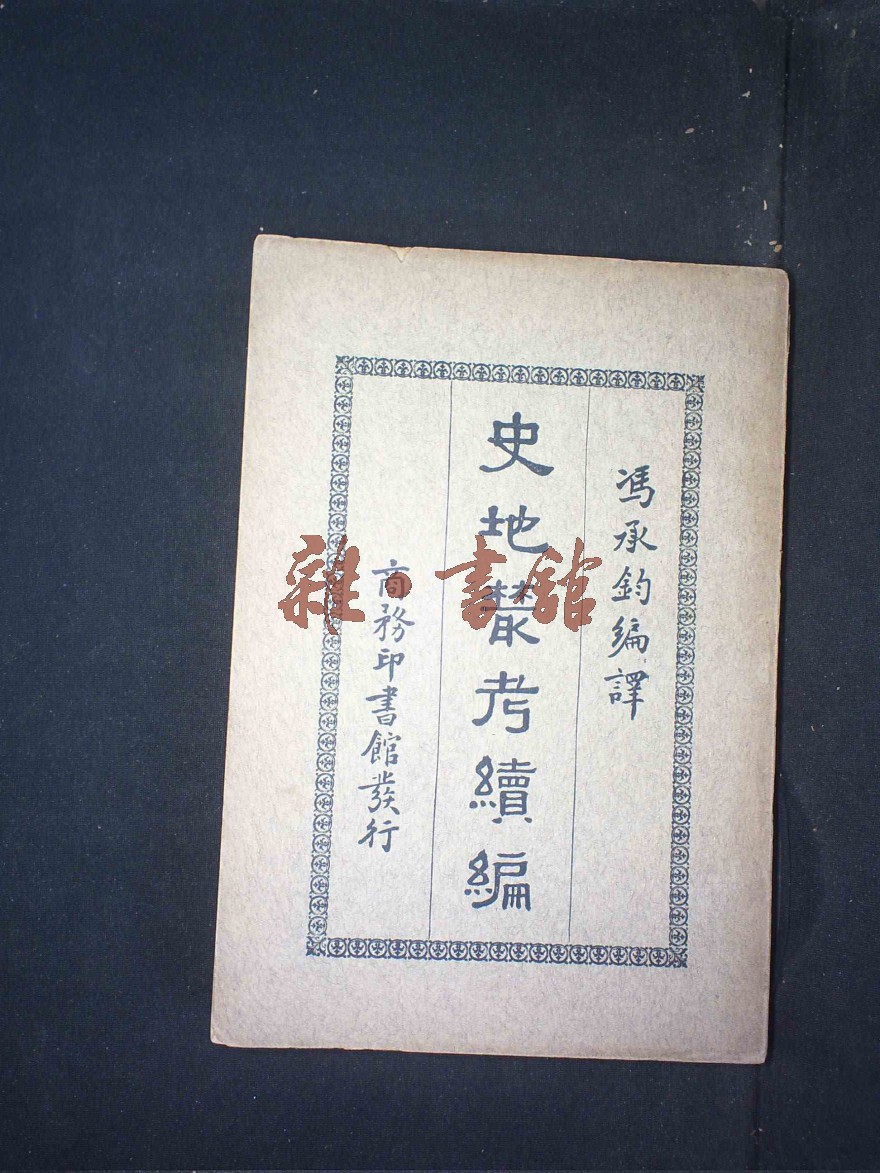 馮承鈞編譯
史地叢考續編
商務印書館發行
雜書館